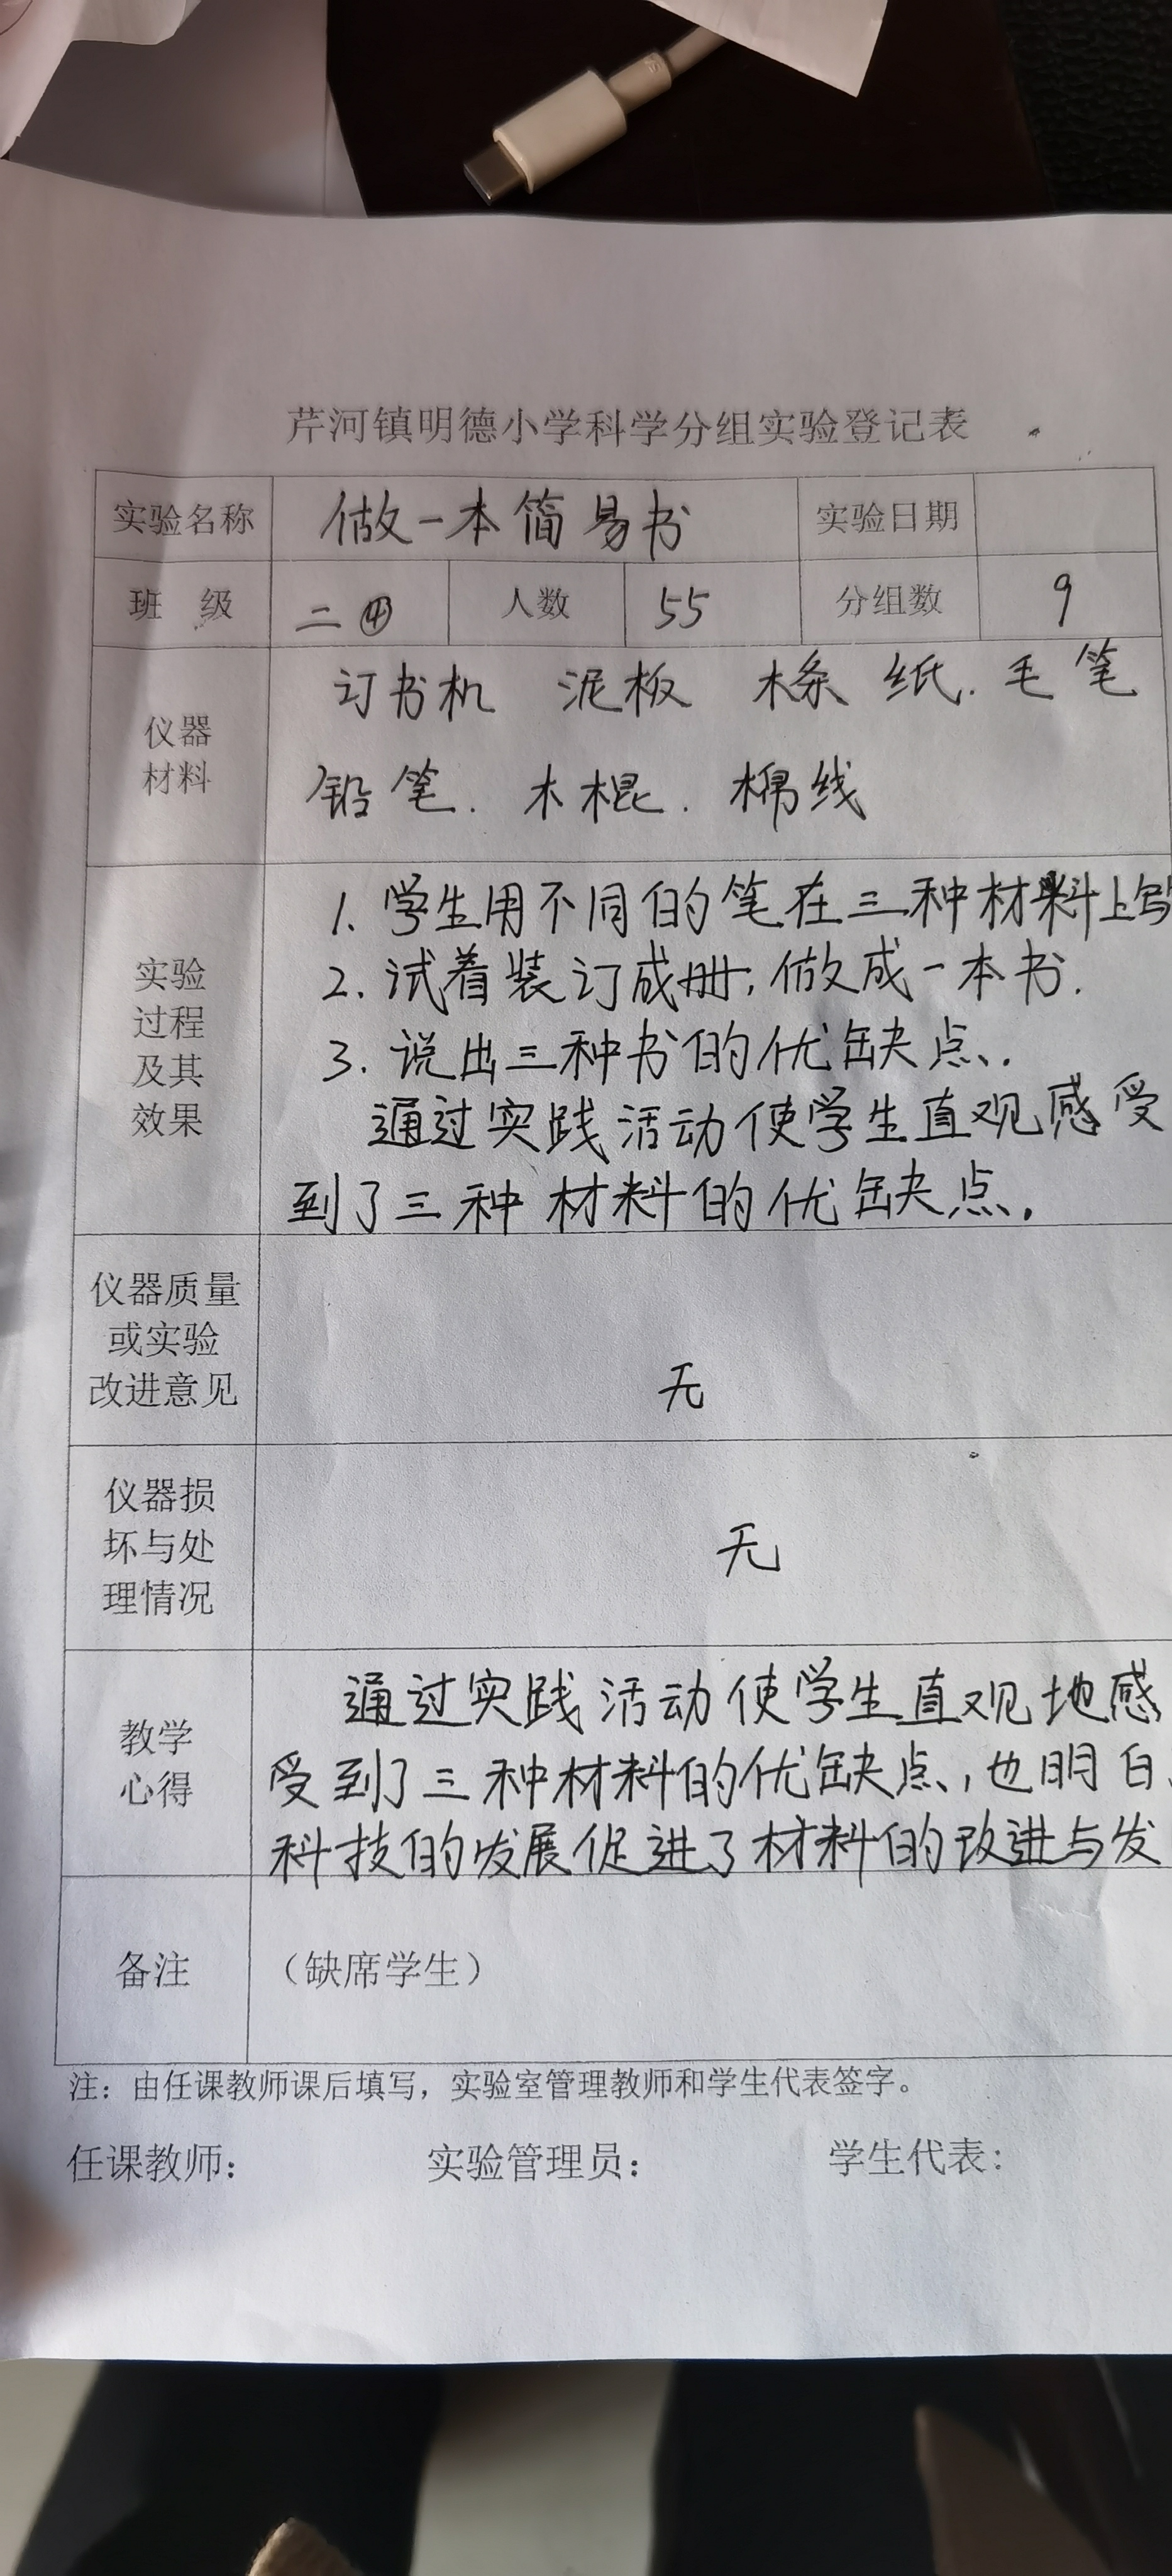 芹河镇明德小学科学分组实验登记表
实验名称 做一本简易书 实验日期
班 级 二④ 人数 55 分组数 9
仪器材料
订书机 泥板 木条 纸. 毛笔
铅笔. 木棍. 棉线
实验过程及其效果
1. 学生用不同的笔在三种材料上写
2. 试着装订成册, 做成一本书.
3. 说出三种书的优缺点.
通过实践活动使学生直观感受
到了三种材料的优缺点.
仪器质量或实验改进意见
无
仪器损坏与处理情况
无
教学心得
通过实践活动使学生直观地感
受到了三种材料的优缺点, 也明白
科技的发展促进了材料的改进与发
备注 （缺席学生）
注：由任课教师课后填写，实验室管理教师和学生代表签字。
任课教师： 实验管理员： 学生代表：